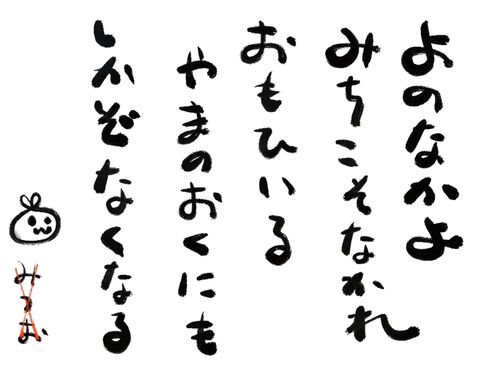 よのなかよ
みちこそなかれ
おもひいる
やまのおくにも
しかぞなくなる